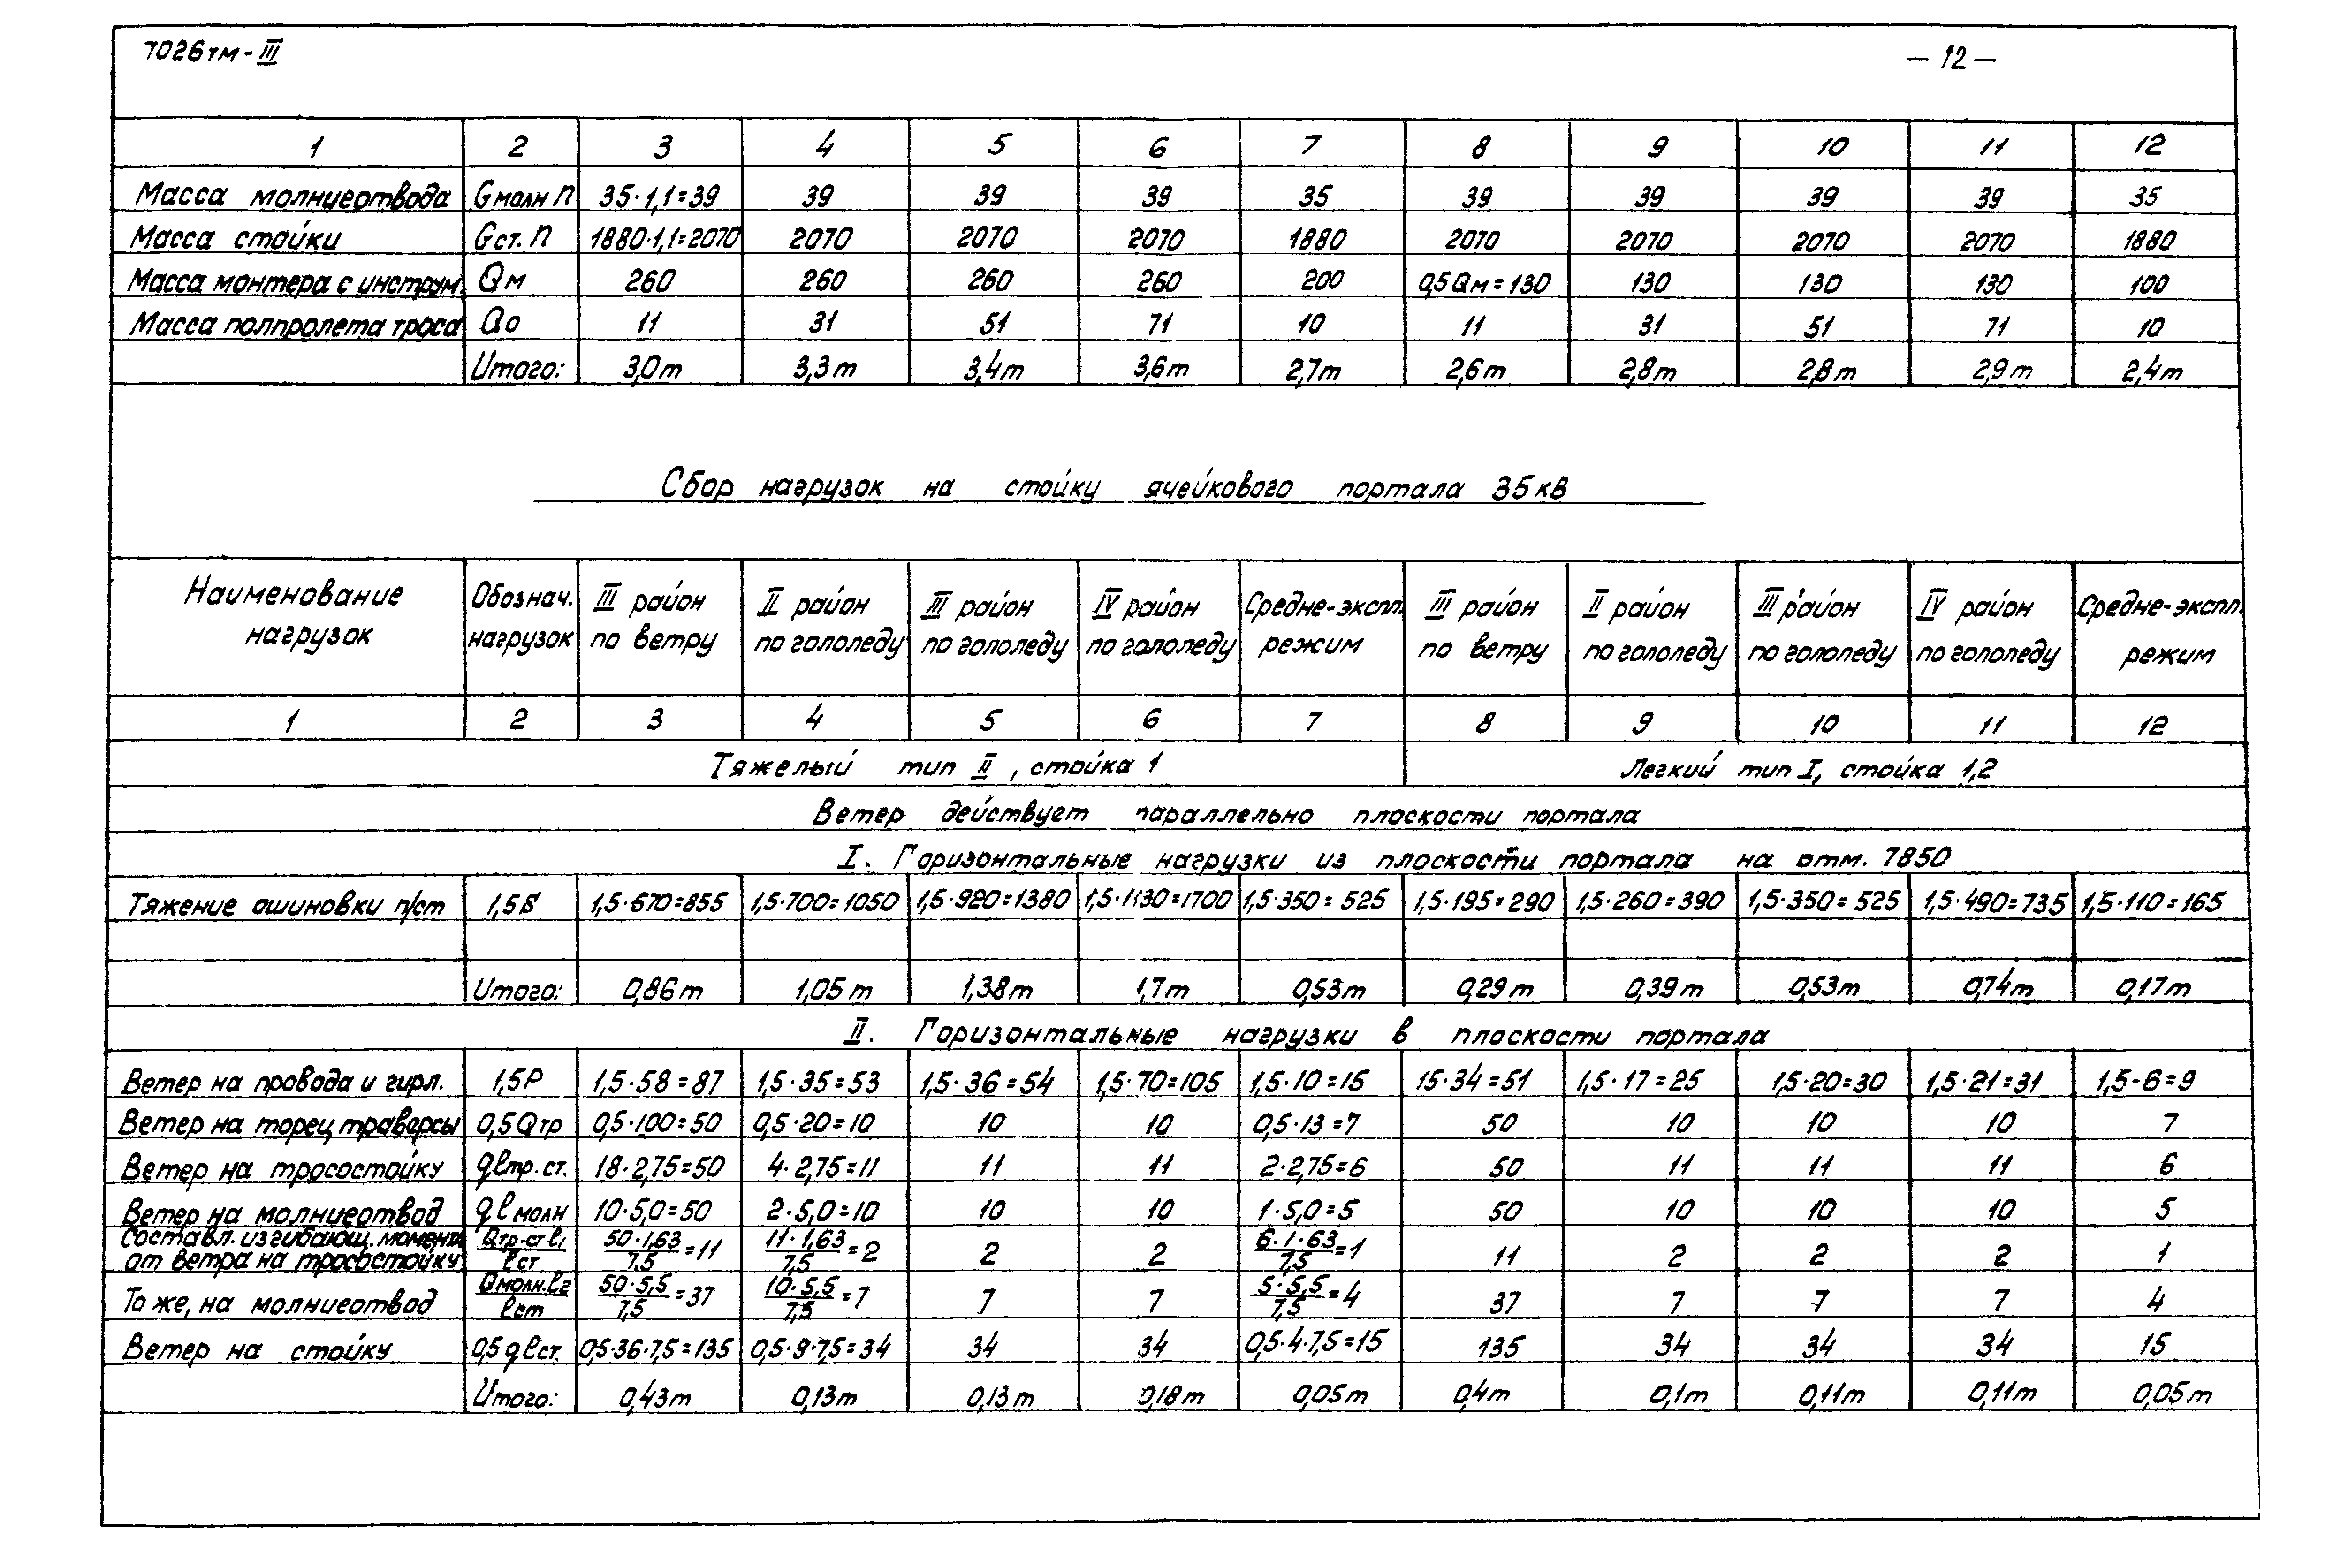 7026тм-III
— 12 —
1 2 3 4 5 6 7 8 9 10 11 12
Масса молниеотвода Gмолн П 35·1,1=39 39 39 39 35 39 39 39 39 35
Масса стойки Gст. П 1880·1,1=2070 2070 2070 2070 1880 2070 2070 2070 2070 1880
Масса монтера с инструм. Qм 260 260 260 260 200 0,5Qм=130 130 130 130 100
Масса полпролета троса Qо 11 31 51 71 10 11 31 51 71 10
Итого: 3,0т 3,3т 3,4т 3,6т 2,7т 2,6т 2,8т 2,8т 2,9т 2,4т
Сбор нагрузок на стойку ячейкового портала 35кВ
Наименование Обознач. III район II район III район IV район Средне-экспл. III район II район III район IV район Средне-экспл.
нагрузок нагрузок по ветру по гололеду по гололеду по гололеду режим по ветру по гололеду по гололеду по гололеду режим
1 2 3 4 5 6 7 8 9 10 11 12
Тяжелый тип II, стойка 1 Легкий тип I, стойка 1,2
Ветер действует параллельно плоскости портала
I. Горизонтальные нагрузки из плоскости портала на отм. 7850
Тяжение ошиновки п/ст 1,5S 1,5·570=855 1,5·700=1050 1,5·920=1380 1,5·1130=1700 1,5·350=525 1,5·195=290 1,5·260=390 1,5·350=525 1,5·490=735 1,5·110=165
Итого: 0,86т 1,05т 1,38т 1,7т 0,53т 0,29т 0,39т 0,53т 0,74т 0,17т
II. Горизонтальные нагрузки в плоскости портала
Ветер на провода и гирл. 1,5P 1,5·58=87 1,5·35=53 1,5·36=54 1,5·70=105 1,5·10=15 15·34=51 1,5·17=25 1,5·20=30 1,5·21=31 1,5·6=9
Ветер на торец траверсы 0,5Qтр 0,5·100=50 0,5·20=10 10 10 0,5·13=7 50 10 10 10 7
Ветер на тросостойку qlтр.ст. 18·2,75=50 4·2,75=11 11 11 2·2,75=6 50 11 11 11 6
Ветер на молниеотвод qlмолн 10·5,0=50 2·5,0=10 10 10 1·5,0=5 50 10 10 10 5
Составл. изгибающ. момента Qтр.ст l1 50·1,63 11·1,63 6·1·63
от ветра на тросостойку lст 7,5 =11 7,5 =2 2 2 7,5 =1 11 2 2 2 1
То же, на молниеотвод Qмолн.l2/lст 50·5,5/7,5=37 10·5,5/7,5=7 7 7 5·5,5/7,5=4 37 7 7 7 4
Ветер на стойку 0,5qlст. 0,5·36·7,5=135 0,5·9·7,5=34 34 34 0,5·4·7,5=15 135 34 34 34 15
Итого: 0,43т 0,13т 0,13т 0,18т 0,05т 0,4т 0,1т 0,11т 0,11т 0,05т